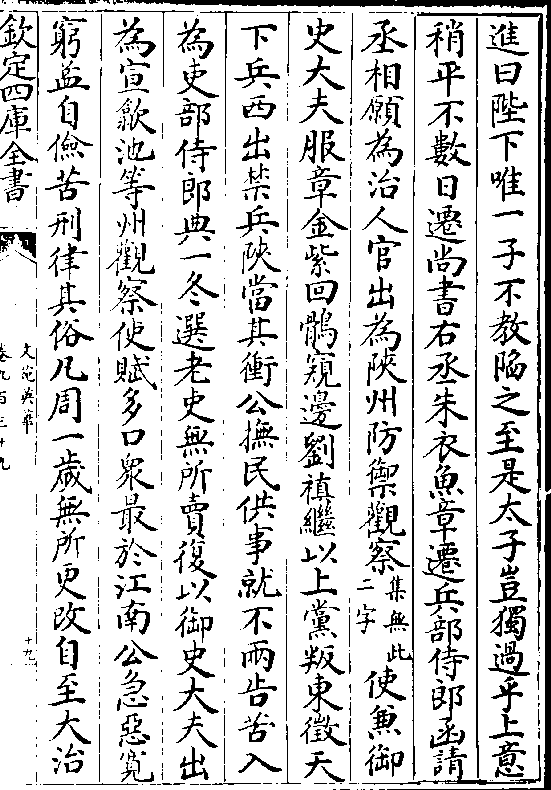 進曰陛下唯一子不教陷之至是太子豈獨過乎上意
稍平不數日遷尚書右丞朱衣魚章遷兵部侍郎函請
丞相願為治人官出為陜州防禦觀察集無此二字使兼御
史大夫服章金紫回鶻窺邊劉稹繼以上黨叛東徵天
下兵西出禁兵陜當其衝公撫民供事就不兩告苦入
為吏部侍郎典一冬選老吏無所賣復以御史大夫出
為宣歙池等州觀察使賦多口衆最於江南公急惡寛
窮孟自儉苦刑律其俗凡周一歲無所更改自至大治
欽定四庫全書
文苑英華
卷九百三十九
十九